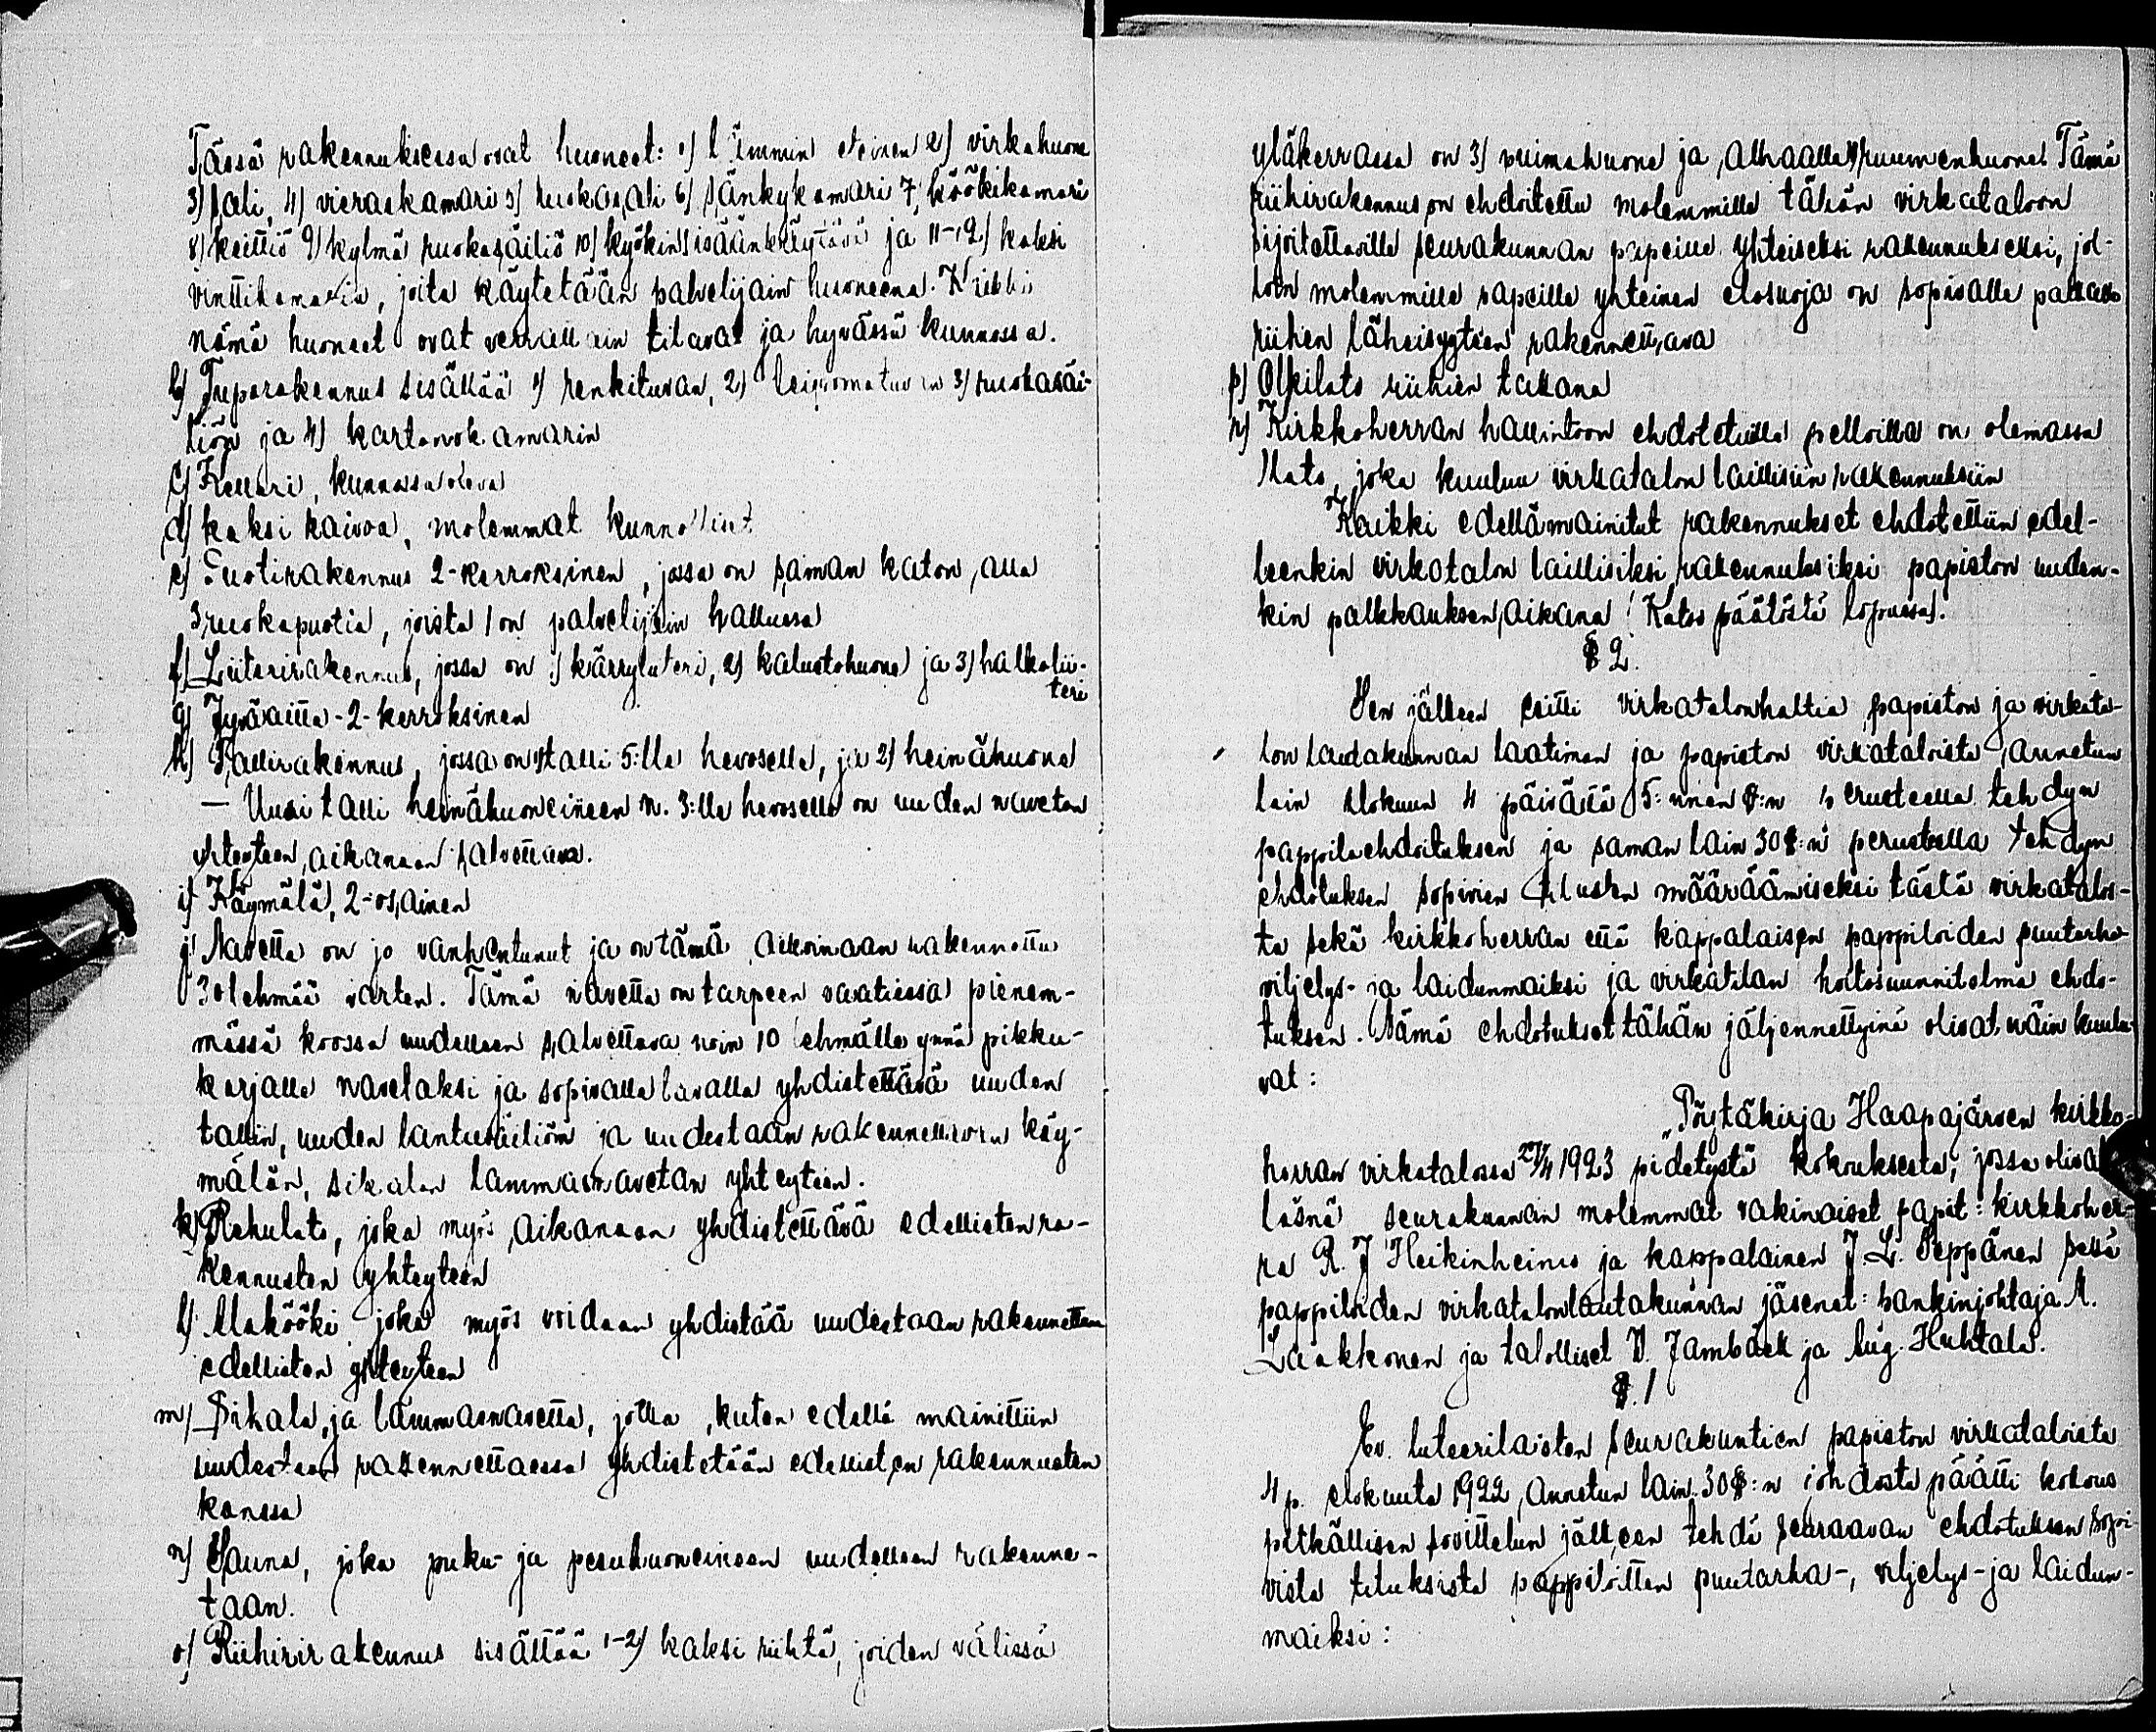 Tässä rakennuksessa ovat huoneet: 1) lämmin eteinen 2) virkahuone
3) sali, 4) vieraskamari 5) ruokasali 6) sänkykamari 7) köökikamari
8) keittiö 9) kylmä ruokasäiliö 10) kyökin sisäänkäytävä ja 11-12) kaksi
vinttikamaria, joita käytetään palvelijain huoneena. Kaikki
nämä huoneet ovat verrattain tilavat ja hyvässä kunnossa.
b) Tuparakennus sisältää 1) renkituvan, 2) leipomatuvan 3) ruokasäi-
liön ja 4) kartanokamarin
c) Kellari, kunnossa oleva
d) kaksi kaivoa, molemmat kunnolliset
e) Puotirakennus 2-kerroksinen, jossa on saman katon alla
3 ruokapuotia, joista 1 on palvelijain hallussa
f) Liiterirakennus, jossa on 1) kärryliiteri, 2) kalustohuone ja 3) halkolii-
teri
g) Jyväaitta -2- kerroksinen
h) Tallirakennus, jossa on 1) talli 5:lle hevoselle, ja 2) heinähuone
— Uusi talli heinähuoneineen n. 3:lle hevoselle on uuden navetan
yhteyteen aikanaan salvettava.
i) Käymälä, 2-osainen
j) Navetta on jo vanhentunut ja on tämä aikoinaan rakennettu
30 lehmää varten. Tämä navetta on tarpeen vaatiessa pienem-
mässä koossa uudelleen salvettava noin 10 lehmälle ynnä pikku-
karjalle navetaksi ja sopivalla tavalla yhdistettävä uuden
tallin, uuden lantasäiliön ja uudestaan rakennettavan käy-
mälän, sikalan lammasnavetan yhteyteen.
k) Rehulato, joka myös aikanaan yhdistettävä edellisten ra-
kennusten yhteyteen
l) Alakööki joka myös voidaan yhdistää uudestaan rakennettuun
edellisten yhteyteen
m) Sikala ja lammasnavetta, jotka, kuten edellä mainittiin
uudestaan rakennettaessa yhdistetään edellisten rakennusten
kanssa
n) Sauna, joka puku- ja pesuhuoneineen uudelleen rakenne-
taan.
o) Riihirirakennus sisältää 1-2) kaksi riihtä, joiden välissä
yläkerrassa on 3) puimahuone ja alhaalla 4) ruumenhuone. Tämä
riihirakennus on ehdoitettu molemmille tähän virkataloon
sijoitettaville seurakunnan papeille yhteiseksi rakennukseksi, jol-
loin molemmille papeille yhteinen elosuoja on sopivalle paikalle
riihen läheisyyteen rakennettava
p) Olkilato riihien takana
r) Kirkkoherran hallintoon ehdotetuilla pelloilla on olemassa
lato, joka kuuluu virkatalon laillisiin rakennuksiin
Kaikki edellämainitut rakennukset ehdotettiin edel-
leenkin virkatalon laillisiksi rakennuksiksi papiston uuden-
kin palkkauksen aikana! Katso päätöstä lopussa).
§ 2.
Sen jälkeen esitti virkatalonhaltia papiston ja virkata-
lon lautakunnan laatiman ja papiston virkataloista annetun
lain elokuun 4 päivältä 5:nnen §:n perusteella tehdyn
pappilaehdoituksen ja saman lain 30 §:n perusteella tehdyn
ehdotuksen sopivien tilusten määräämiseksi tästä virkatalos-
ta sekä kirkkoherran että kappalaisen pappiloiden puutarha-
viljelys- ja laidunmaiksi ja virkatilan hoitosuunnitelma ehdo-
tuksen. Nämä ehdotukset tähän jäljennettyinä olivat näin kuulu-
vat:
„Pöytäkirja Haapajärven kirkko-
herran virkatalossa 27/4 1923 pidetystä kokouksesta, jossa olivat
läsnä seurakunnan molemmat vakinaiset papit: kirkkoher-
ra R. J Heikinheimo ja kappalainen J. L. Seppänen sekä
pappiloiden virkatalonlautakunnan jäsenet: pankinjohtaja A.
Laakkonen ja talolliset V. Jämbäck ja Aug. Huhtala.
§.1
Ev. luteerilaisten seurakuntien papiston virkataloista
4 p. elokuuta 1922, annetun lain 30 §:n johdosta päätti kokous
pitkällisen sovittelun jälkeen tehdä seuraavan ehdotuksen sopi-
vista tiluksista pappiloitten puutarha-, viljelys- ja laidun-
maiksi: